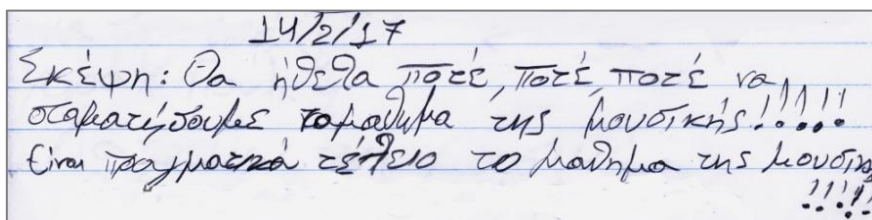 14/2/17
Σκέψη: Θα ήθελα ποτέ, ποτέ, ποτέ να
σταματήσουμε το μάθημα της μουσικής!!!!!
Είναι πραγματικά τέλειο το μάθημα της μουσικ
!!!!!